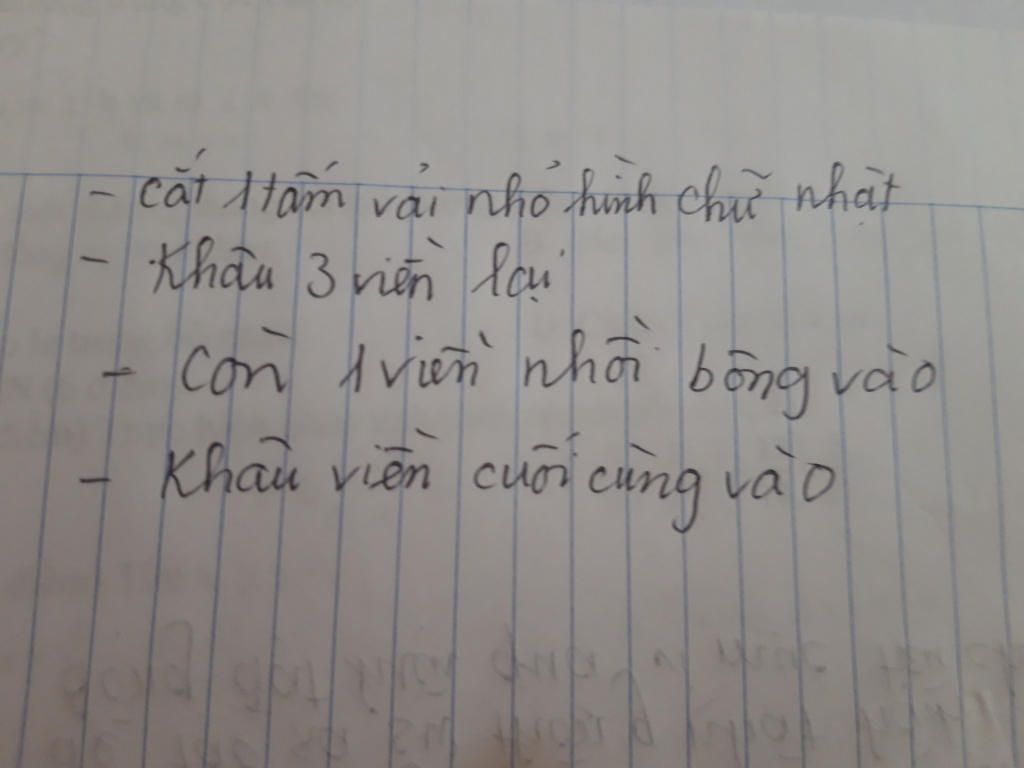 - cắt 1 tấm vải nhỏ hình chữ nhật
- Khâu 3 viền lại
- Còn 1 viền nhồi bông vào
- Khâu viền cuối cùng vào